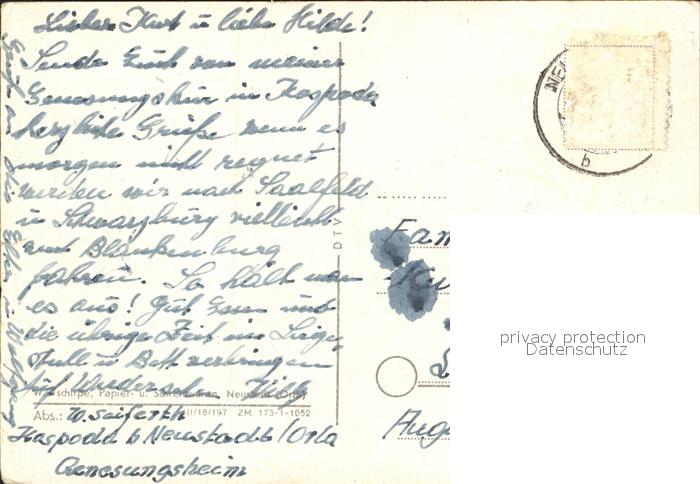 Lieber Kurt u liebe Hilde!
Sende Euch von meiner
Genesungskur in Kospoda
herzliche Grüße wenn es
morgen nicht regnet
werden wir nach Saalfeld
u Schwarzburg vielleicht
und Blankenburg
fahren. So hält man
es aus! Gut Essen und
die übrige Zeit im Liege
stuhl u Bett verbringen
Auf Wiedersehn Willy
Papier- u. Schreibwaren, Neustadt (Orla)
Abs.: W. Seiferth
III/18/197 ZM. 173-1-1052
Kospoda b Neustadt/Orla
Genesungsheim
DTV
NEU
b
Fam
Ku
privacy protection
Datenschutz
Augu